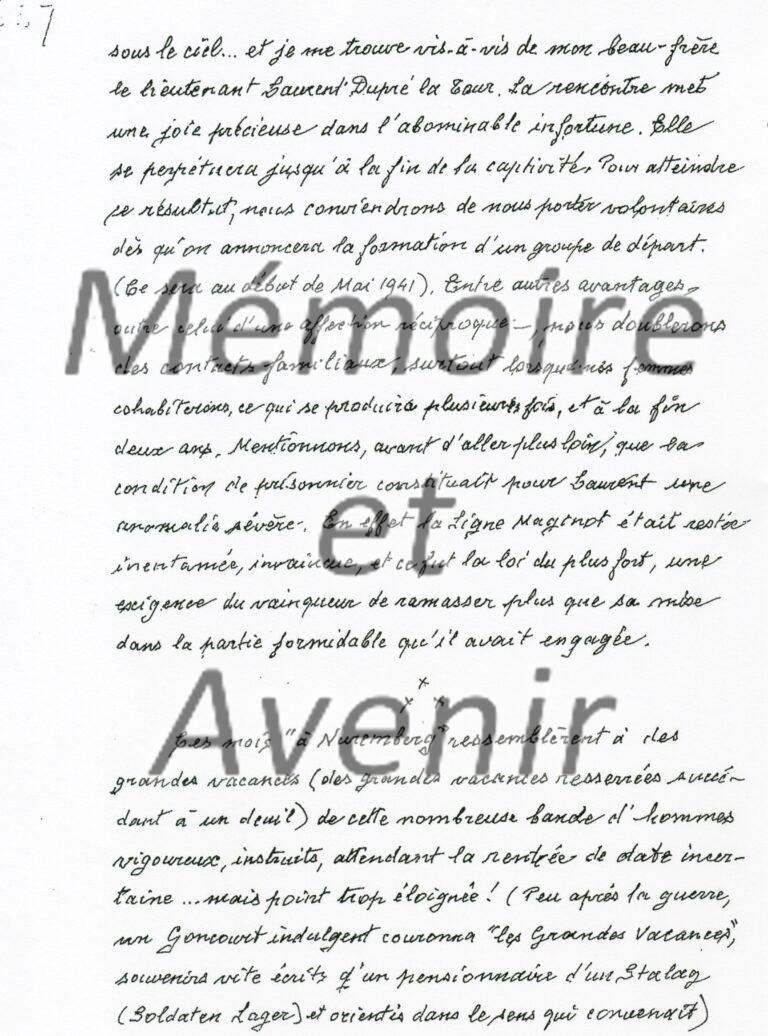 7
sous le ciel... et je me trouve vis-à-vis de mon beau-frère
le lieutenant Laurent Dupré la Tour. La rencontre met
une joie précieuse dans l'abominable infortune. Elle
se perpétuera jusqu'à la fin de la captivité. Pour atteindre
ce résultat, nous conviendrons de nous porter volontaires
dès qu'on annoncera la formation d'un groupe de départ.
(Ce sera au début de Mai 1941). Entre autres avantages,
outre celui d'une affection réciproque -, nous doublerons
des contacts familiaux, surtout lorsque nos femmes
cohabiterons, ce qui se produira plusieurs fois, et à la fin
deux ans. Mentionnons, avant d'aller plus loin, que la
condition de prisonnier constituait pour Laurent une
anomalie sévère. En effet la Ligne Maginot était restée
inentamée, invaincue, et ce fut la loi du plus fort, une
exigence du vainqueur de ramasser plus que sa mise
dans la partie formidable qu'il avait engagée.
x
x x
Ces mois "à Nuremberg" ressemblèrent à des
grandes vacances (des grandes vacances resserrées succé-
dant à un deuil) de cette nombreuse bande d'hommes
vigoureux, instruits, attendant la rentrée de date incer-
taine ... mais point trop éloignée ! (Peu après la guerre,
un Goncourt indulgent couronna "les Grandes Vacances",
souvenirs vite écrits d'un pensionnaire d'un Stalag
(Soldaten Lager) et orientés dans le sens qui convenait)
Mémoire
et
Avenir